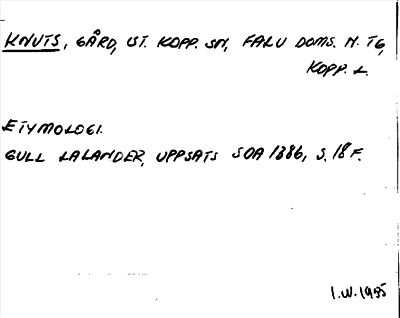 KNUTS, GÅRD, ST. KOPP. SN, FALU DOMS. N. TG,
KOPP. L.
ETYMOLOGI.
GULL LALANDER, UPPSATS SOA 1386, S. 18 F.
I.W. 1955